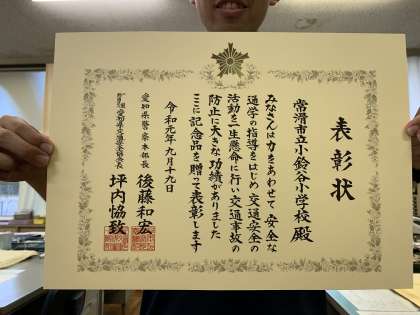 表彰状
常滑市立小鈴谷小学校 殿
みなさんは力をあわせて 安全な
通学の指導をはじめ 交通安全の
活動を一生懸命に行い 交通事故の
防止に大きな功績がありました
ここに記念品を贈って表彰します
令和元年九月十九日
愛知県警察本部長 後藤和宏
愛知県交通安全協会長 坪内恊致